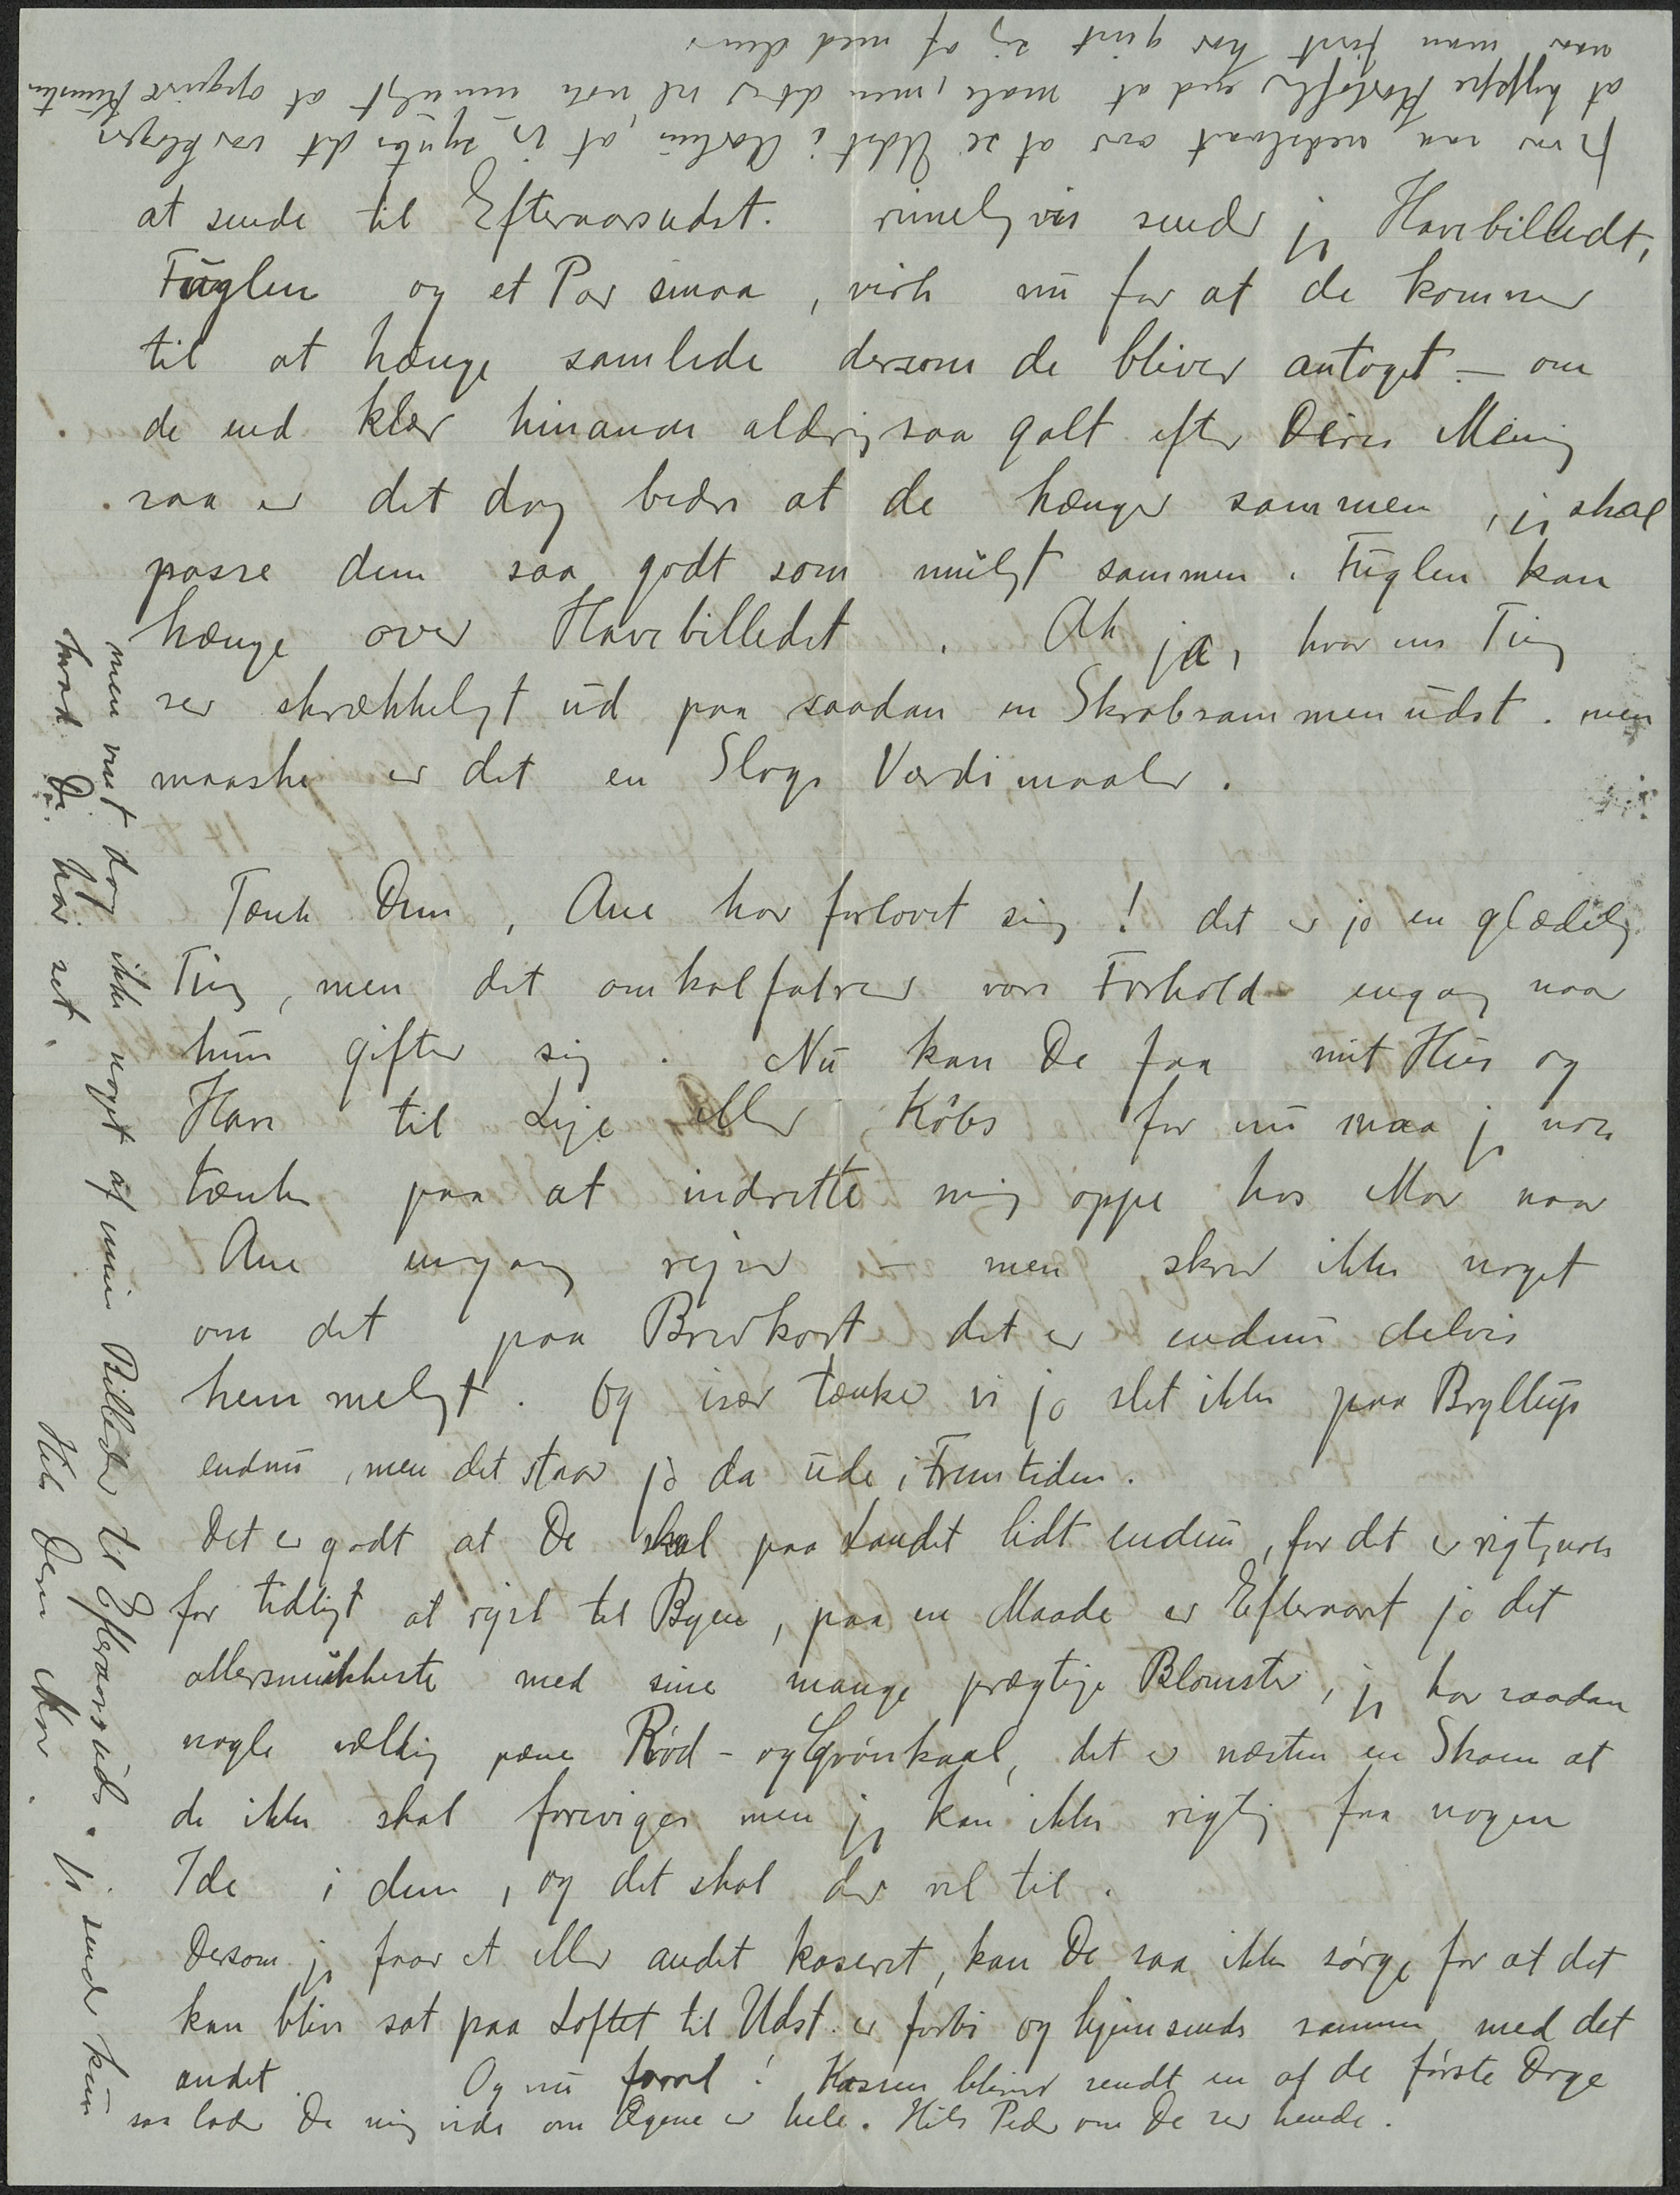 at sende til Efteraarsudst. rimeligvis sender jeg Havebilledt,
Fuglen og et Par smaa, virk nu for at de kommer
til at hænge samlede dersom de bliver antaget – om
de end klær hinanden aldrig saa galt efter Deres Mening
saa er det dog bedre at de hænger sammen, jeg skal
passe dem saa godt som muligt sammen. Fuglen kan
hænge over Havebilledet. Ak ja, hvor ens Ting
ser skrækkeligt ud paa saadan en Skrabsammenudst. men
maaske er det en Slags Værdimaaler.
Tænk Dem, Ane har forlovet sig! det er jo en glædelig
Ting, men det omkalfatrer vore Forhold engang naar
hun gifter sig. Nu kan De faa mit Hus og
Have til Leje eller Købs for nu maa jeg nok
tænke paa at indrette mig oppe hos Mor naar
Ane engang rejser – men skriv ikke noget
om det paa Brevkort det er endnu delvis
hemmeligt. Og især tænker vi jo slet ikke paa Bryllup
endnu, men det staar jo da ude i Fremtiden.
Det er godt at De skal paa Landet lidt endnu, for det er rigtignok
for tidligt at rejse til Byen, paa en Maade er Efteraaret jo det
allersmukkeste med sine mange prægtige Blomster, jeg har saadan
nogle vældig pæne Rød- og Grønkaal, det er næsten en Skam at
de ikke skal foreviges men jeg kan ikke rigtig faa nogen
Ide i dem, og det skal der vel til.
Dersom jeg faar et eller andet kaseret, kan De saa ikke sørge for at det
kan blive sat paa Loftet til Udst. er forbi og hjemsendes sammen med det
andet. Og nu farvel! Kassen bliver sendt en af de første Dage
saa lader De mig vide om Æggene er hele. Hils Peder om De ser hende.
Jeg var saa nedslaaet over at se Udst i Aarhus, at jeg syntes det var klogere
at hyppe Kartofler end at male, men det er vel nok umuligt at opgive Kunsten
naar man først har givet sig af med den.
men vist dog ikke noget af mine Billeder til Efteraarsuds. jeg sender kun
hvad De har set.
Hils Deres Mor.